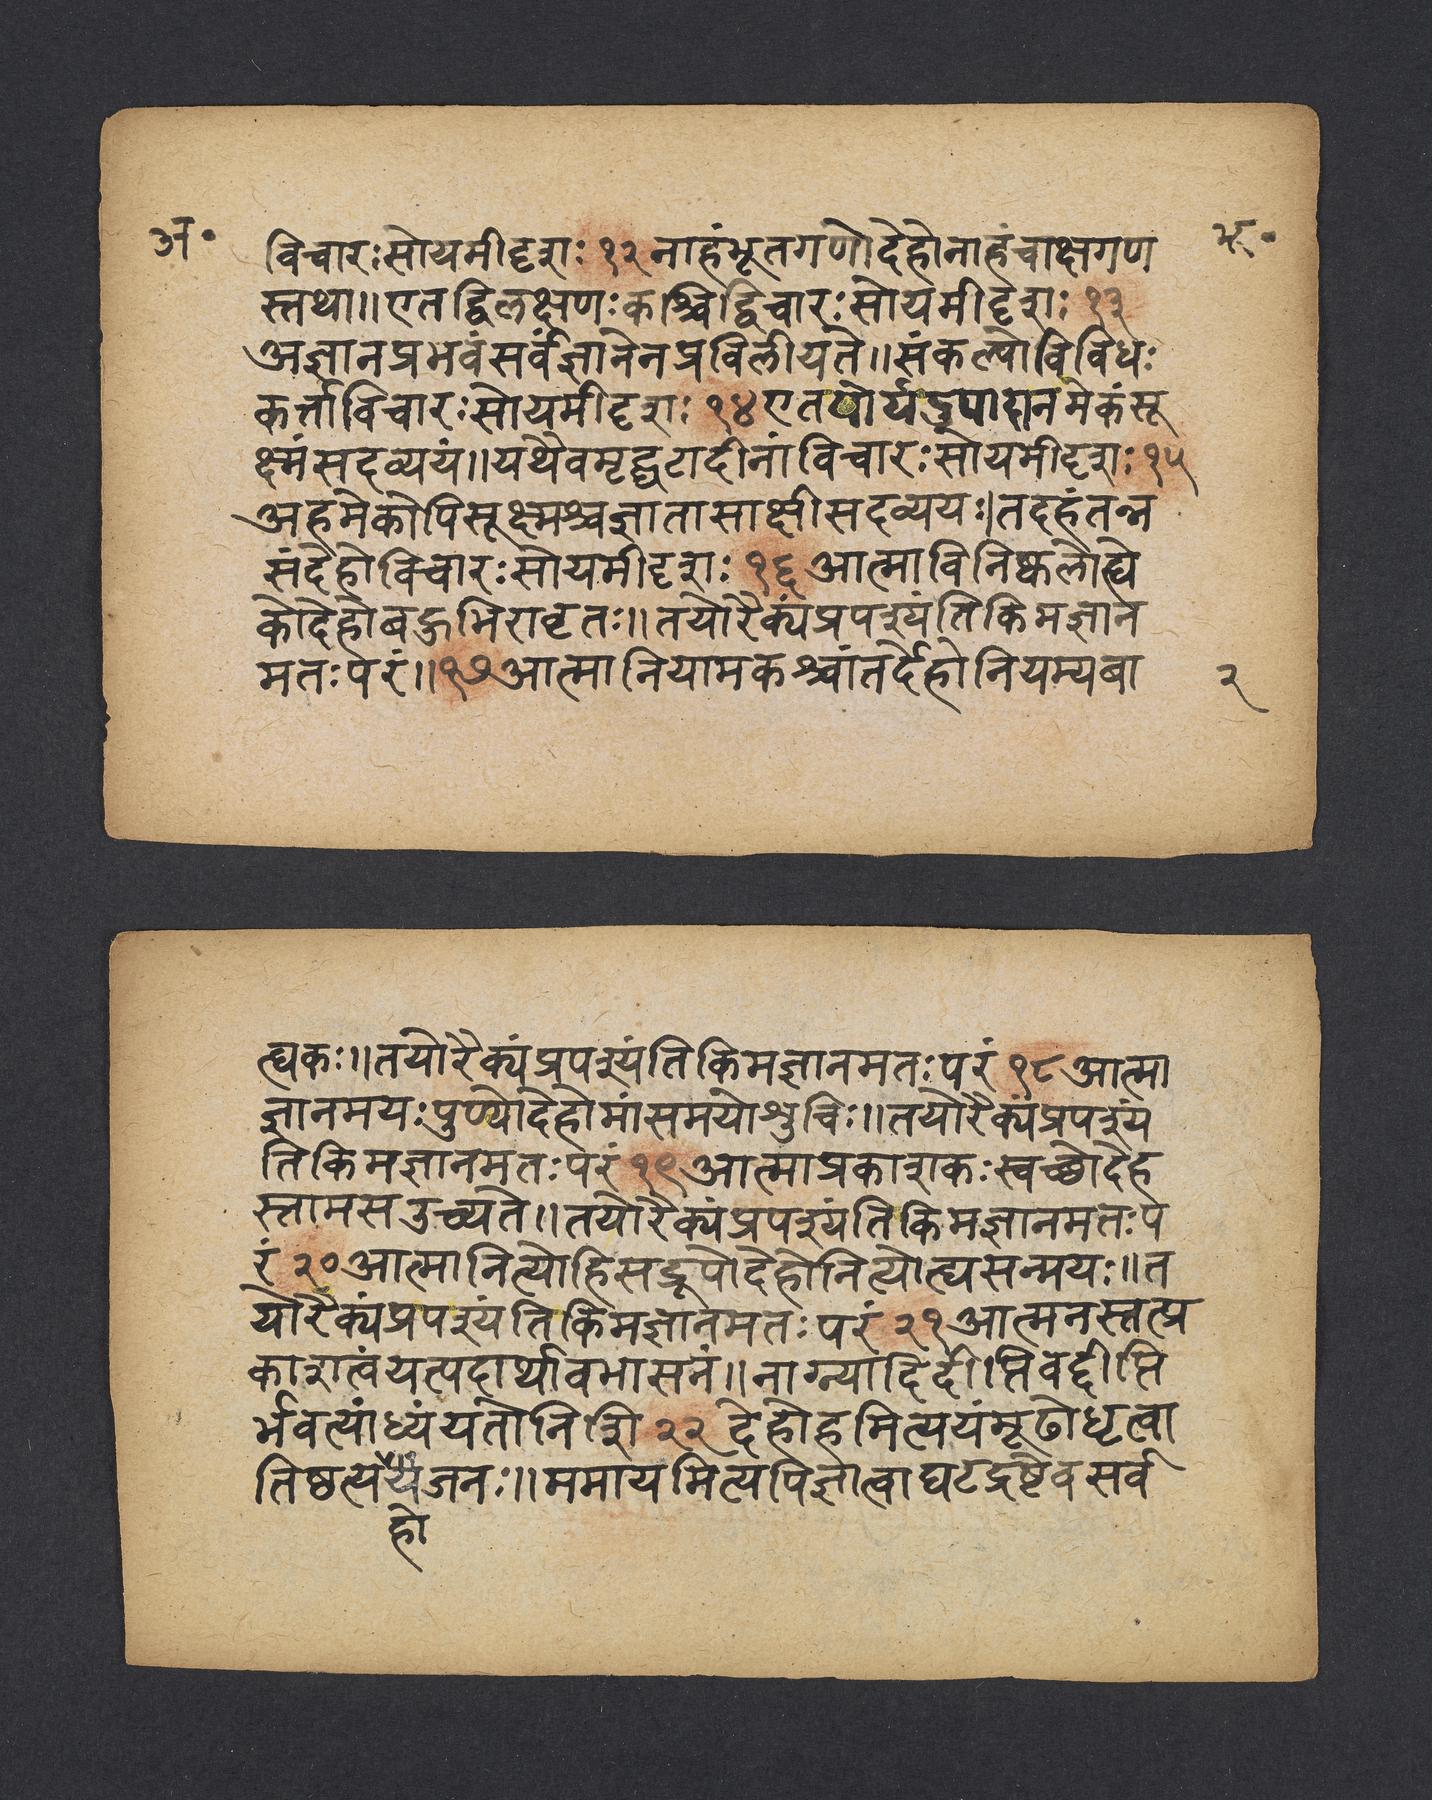 अ॰
विचारःसोयमीदृशः १२ नाहंभूतगणोदेहोनाहंचाक्षगण
स्तथा॥एतद्विलक्षणःकश्चिद्विचारःसोयमीदृशः १३
अज्ञानप्रभवंसर्वंज्ञानेनप्रविलीयते॥संकल्पोविविधः
कर्त्ताविचारःसोयमीदृशः १४ एतयोर्यदुपादानमेकंसू
क्ष्मंसदव्ययं॥यथैवमृद्घटादीनांविचारःसोयमीदृशः १५
अहमेकोपिसूक्ष्मश्चज्ञातासाक्षीसदव्ययः।तदहंतन्न
संदेहोविचारःसोयमीदृशः १६ आत्माविनिष्कलोह्ये
कोदेहोबहुभिरावृतः॥तयोरैक्यंप्रपश्यंतिकिमज्ञान
मतःपरं॥१७आत्मानियामकश्चांतर्देहोनियम्यबा
२
त्द्यकः॥तयोरैक्यंप्रपश्यंतिकिमज्ञानमतःपरं १८ आत्मा
ज्ञानमयःपुण्योदेहोमांसमयोशुचिः॥तयोरैक्यंप्रपश्यं
तिकिमज्ञानमतःपरं १९ आत्माप्रकाशकःस्वच्छोदेह
स्तामसउच्यते॥तयोरैक्यंप्रपश्यंतिकिमज्ञानमतःप
रं २० आत्मानित्योहिसद्रूपोदेहोनित्योत्द्यसन्मयः॥त
योरैक्यंप्रपश्यंतिकिमज्ञानमतःपरं २१ आत्मनस्तत्प्र
काशत्वंयत्पदार्थावभासनं॥नाग्न्यादिदीप्तिवद्दीप्ति
र्भवत्यांध्यंयतोनिशि २२ देहोहमित्ययंमूढोधृत्वा
तिष्ठत्ययंजनः॥ममायमित्यपिज्ञात्वाघटद्रष्टेवसर्व
हो